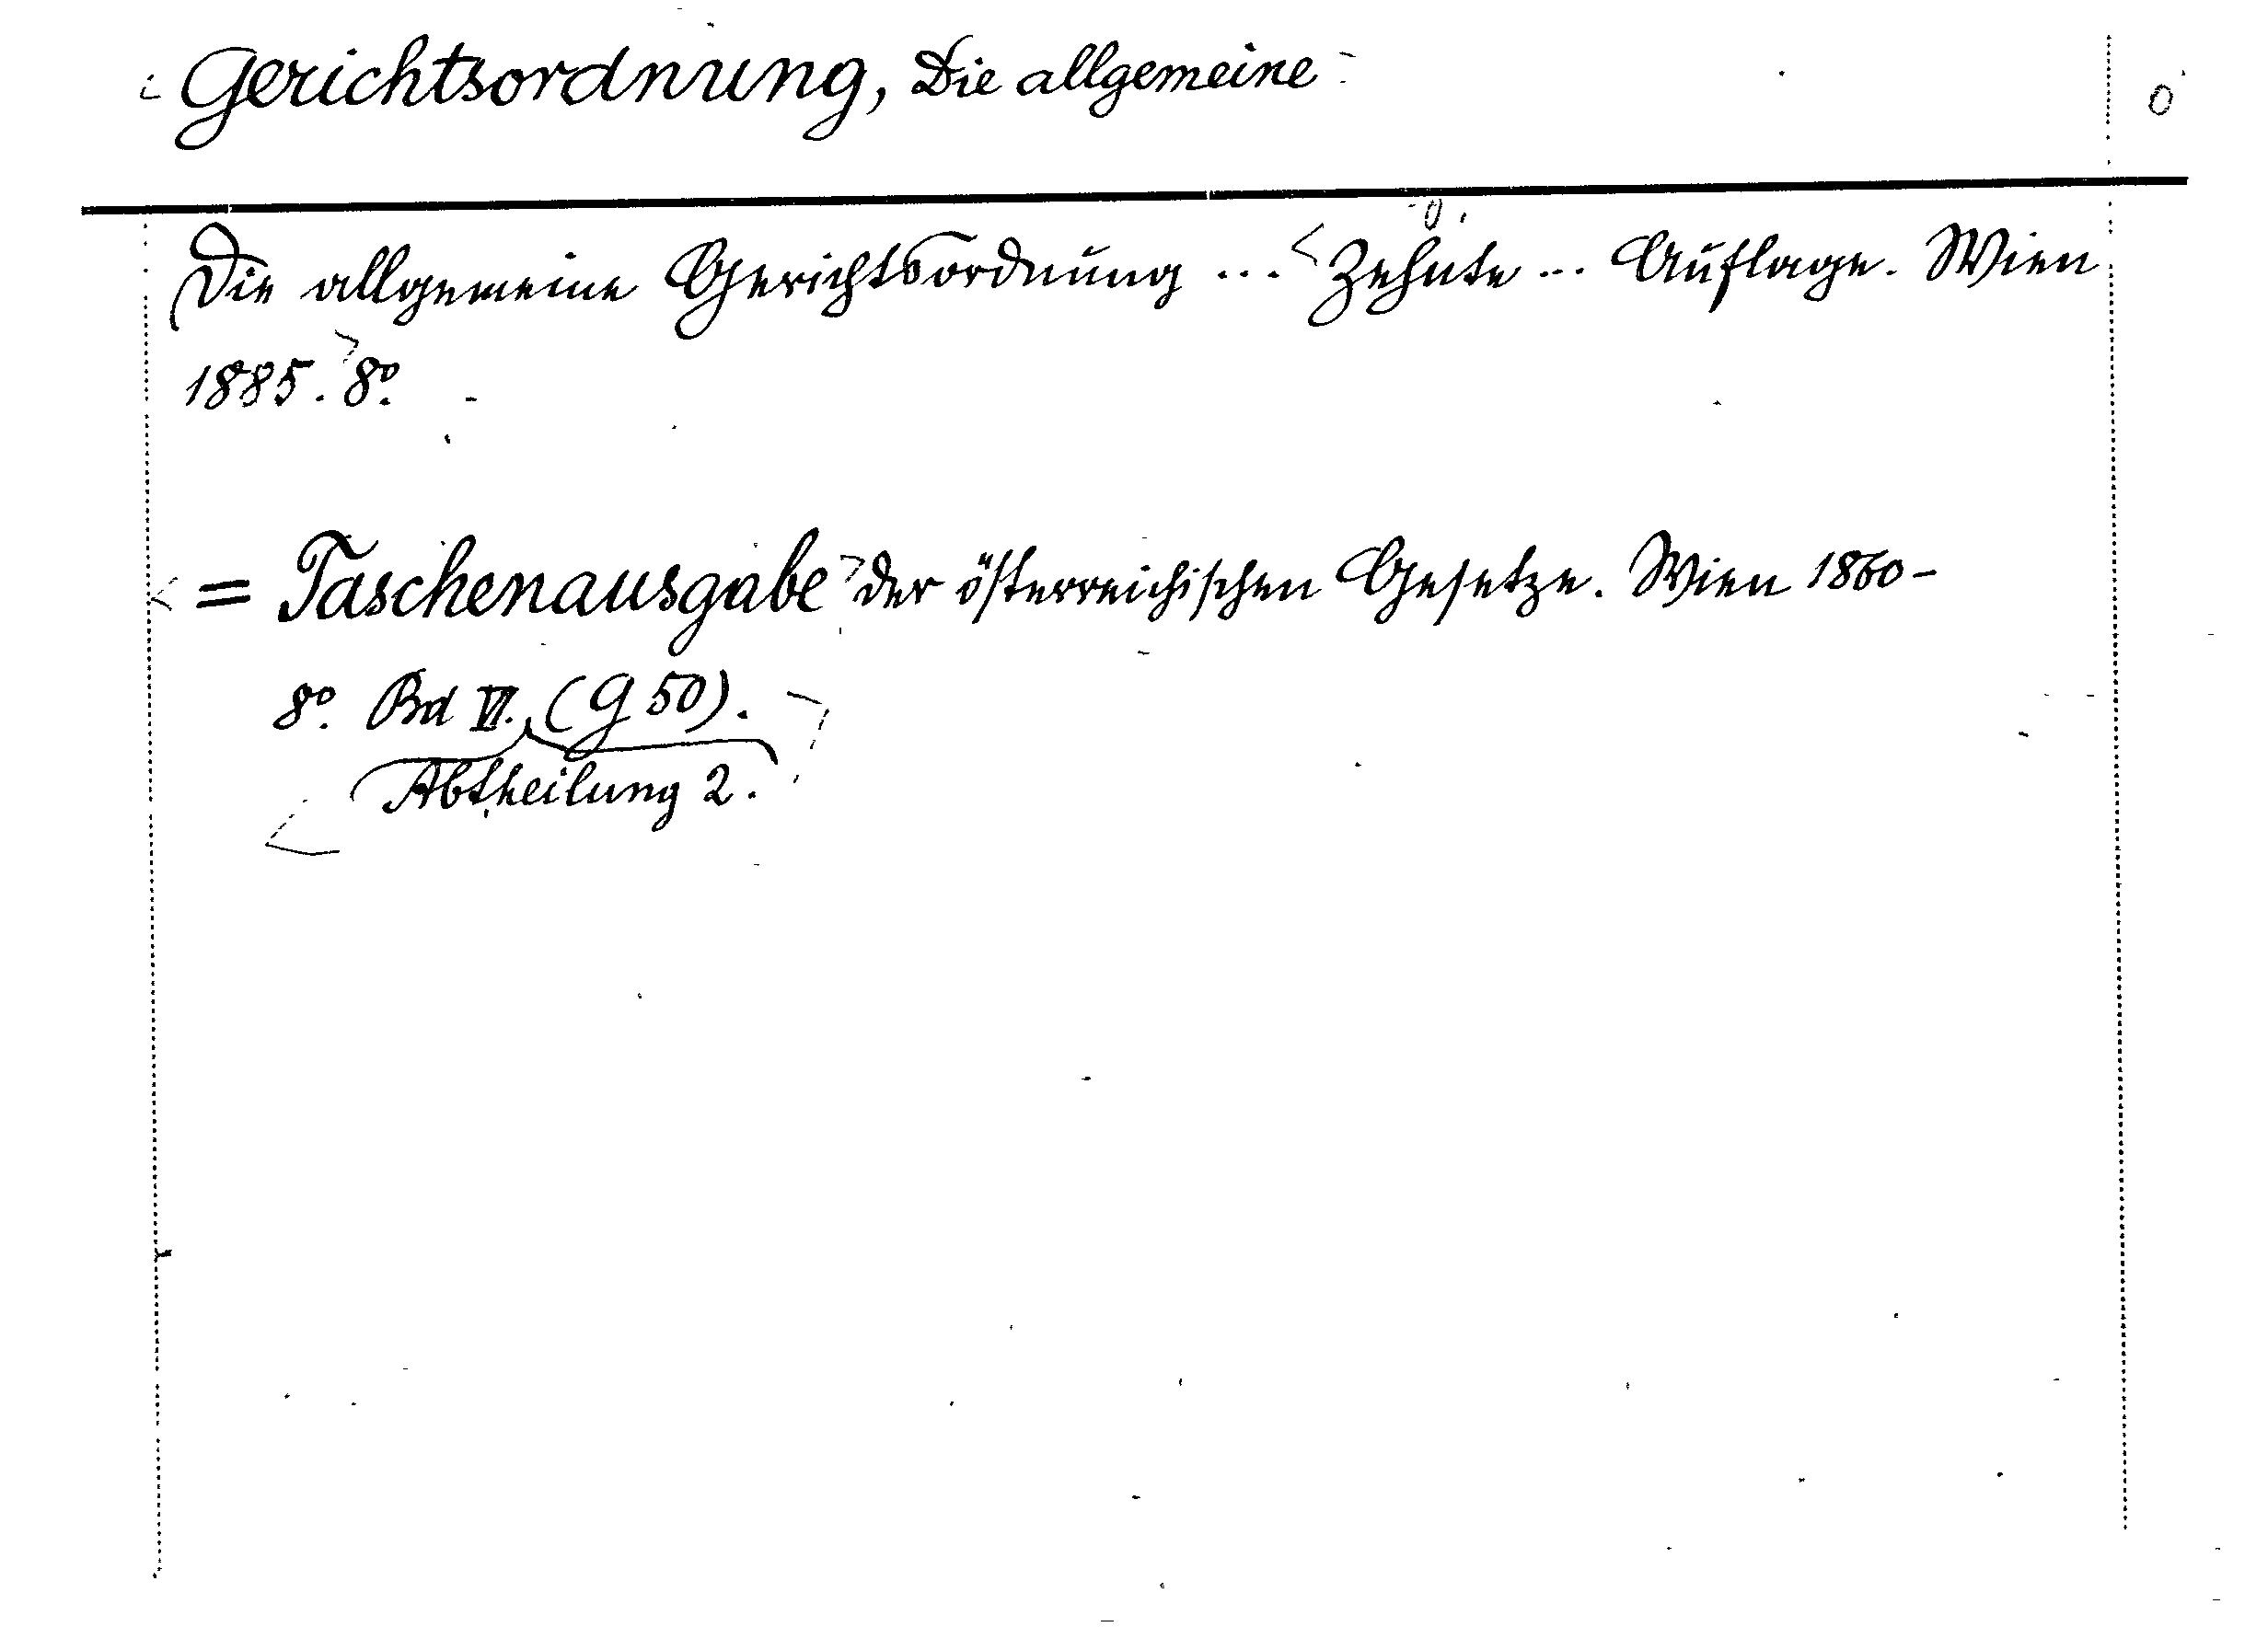 Gerichtsordnung, Die allgemeine 0
Die allgemeine Gerichtsordnung ... Zehnte ... Auflage. Wien
1885. 8º.
= Taschenausgabe der österreichischen Gesetze. Wien 1860-
8º. Bd VI. (G 50).
Abtheilung 2.